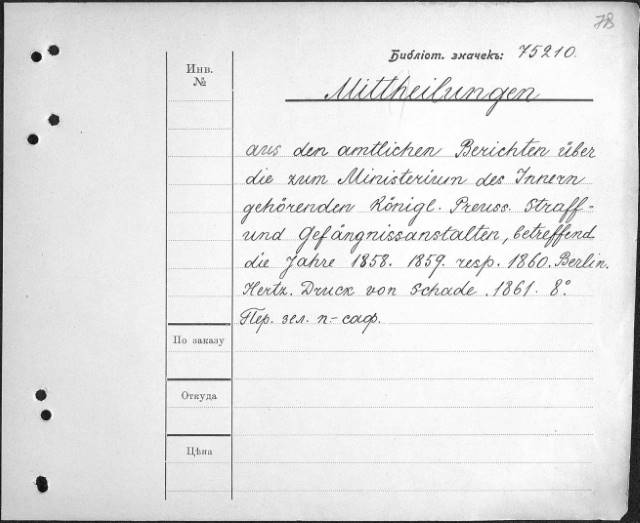 78
Библіот. значекъ: 75210.
Инв.
№
Mittheilungen
aus den amtlichen Berichten über
die zum Ministerium des Innern
gehörenden Königl. Preuss. Straff-
und Gefängnissanstalten, betreffend
die Jahre 1858. 1859. resp. 1860. Berlin.
Hertz. Druck von Schade. 1861. 8°.
Пер. зел. п-саф.
По заказу
Откуда
Цѣна